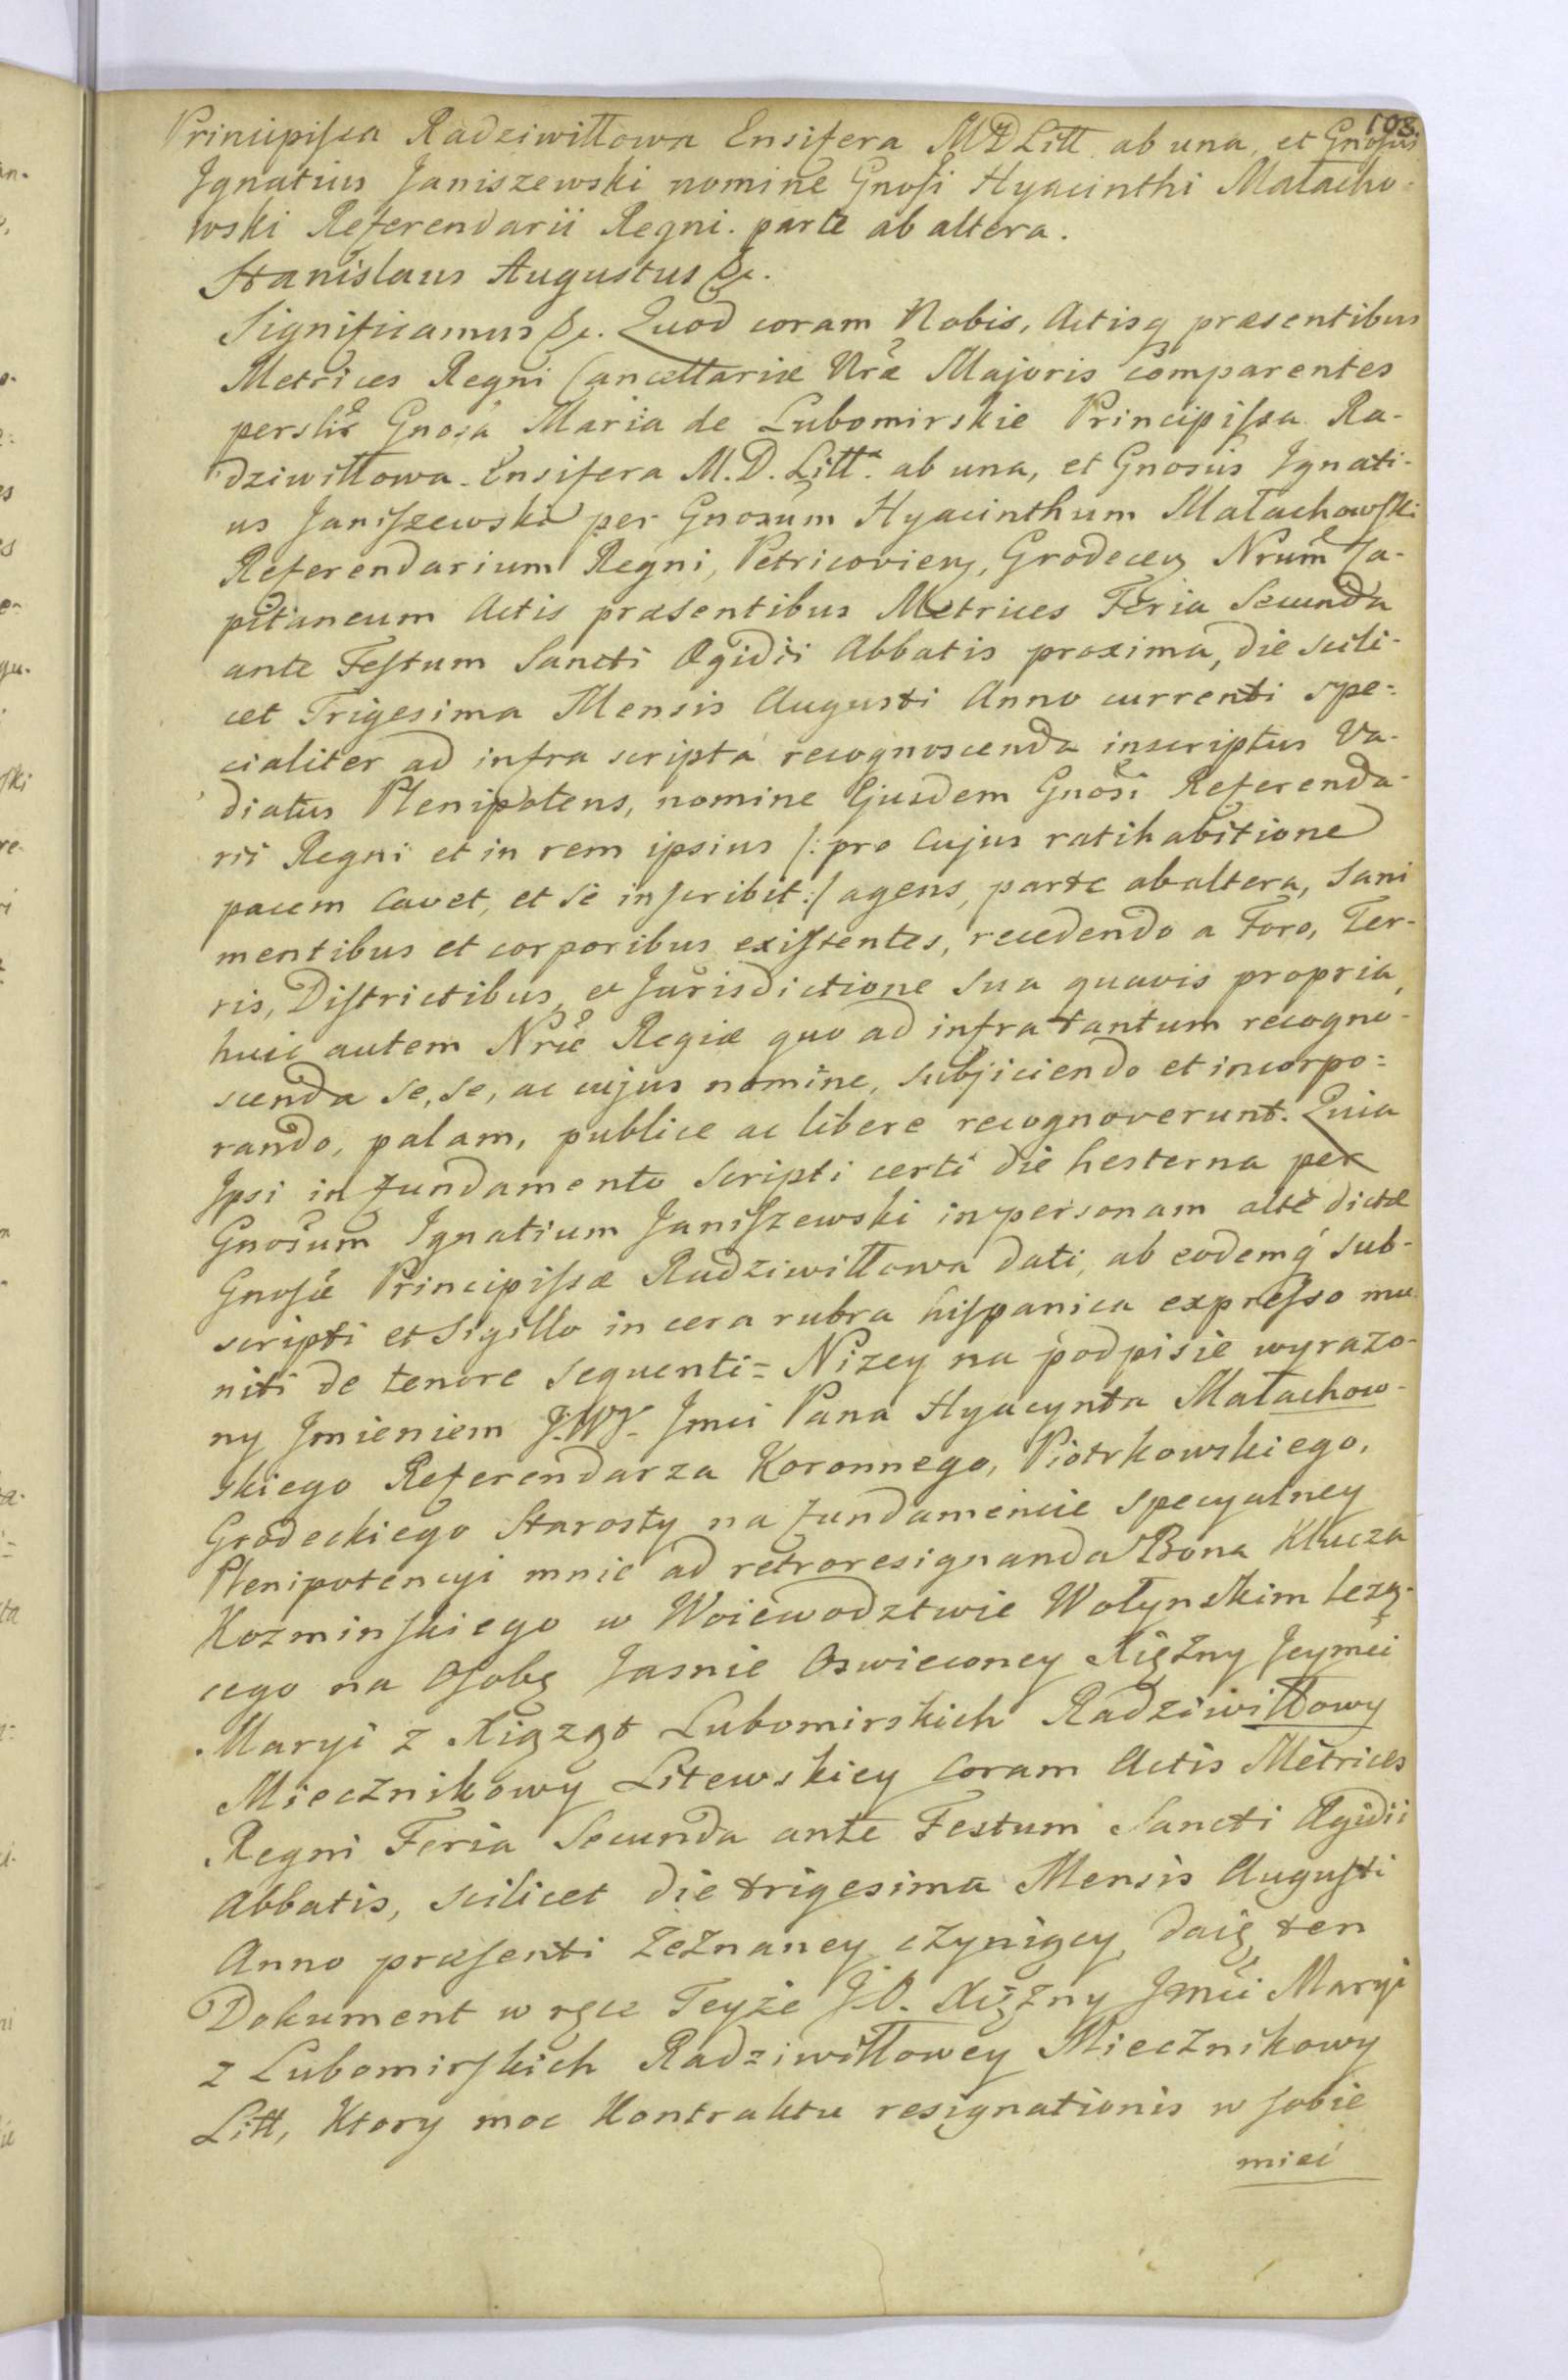 108.
Principissa Radziwiłłowa Ensifera M D Litt. ab una, et Gnosus
Ignatius Janiszewski nomine Gnosi Hyacinthi Małacho-
wski Referendarii Regni. parte ab altera.
Stanislaus Augustus &c.
Significamus &c. Quod coram Nobis, Actisq præsentibus
Metrices Regni Cancellariæ Nræ Majoris comparentes
perslir Gnosa Maria de Lubomirskie Principissa Ra-
dziwiłłowa Ensifera M. D. Litt. ab una, et Gnosus Ignati-
us Janiszewski per Gnosum Hyacinthum Małachowski
Referendarium Regni, Petricovien, Grodecen Nrum Ca-
pitaneum Actis præsentibus Metrices Feria Secunda
ante Festum Sancti Ægidii Abbatis proxima, die scili-
cet Trigesima Mensis Augusti Anno currenti spe-
cialiter ad infra scripta recognoscenda inscriptus Va-
diatus Plenipotens, nomine Ejusdem Gnosi Referenda-
rii Regni et in rem ipsius /: pro cujus ratihabitione
pacem cavet, et se inscribit :/ agens, parte ab altera, Sani
mentibus et corporibus existentes, recedendo a Foro, Ter-
ris, Districtibus, et Jurisdictione sua quavis propria,
huic autem Nræ Regiæ quo ad infra tantum recogno-
scenda se, se, ac cujus nomine, subjiciendo et incorpo-
rando, palam, publice ac libere recognoverunt. Quia
Ipsi in fundamento scripti certi die hesterna per
Gnosum Ignatium Janiszewski in personam alte dictæ
Gnosæ Principissæ Radziwiłłowa dati, ab eodemq sub-
scripti et Sigillo in cera rubra hispanica expresso mu-
niti de tenore sequenti = Nizey na podpisie wyrazo-
ny Imieniem J.W. Jmci Pana Hyacynta Małachow-
skiego Referendarza Koronnego, Piotrkowskiego,
Grodeckiego Starosty na fundamencie specyalney
Plenipotencyi mnie ad retroresignanda Bona Klucza
Kozminskiego w Woiewodztwie Wołynskim leżą-
cego na Osobę Jasnie Oswieconey Xiężny Jeymci
Maryi z Xiążąt Lubomirskich Radziwiłłowy
Miecznikowy Litewskiey coram Actis Metrices
Regni Feria Secunda ante Festum Sancti Ægidii
Abbatis, scilicet die trigesima Mensis Augusti
Anno præsenti Zeznaney czyniący, daię ten
Dokument w ręce Teyże J.O. Xiężny Jmci Maryi
z Lubomirskich Radziwiłłowey Miecznikowy
Litt, Ktory moc Kontraktu resignationis w sobie
mieć